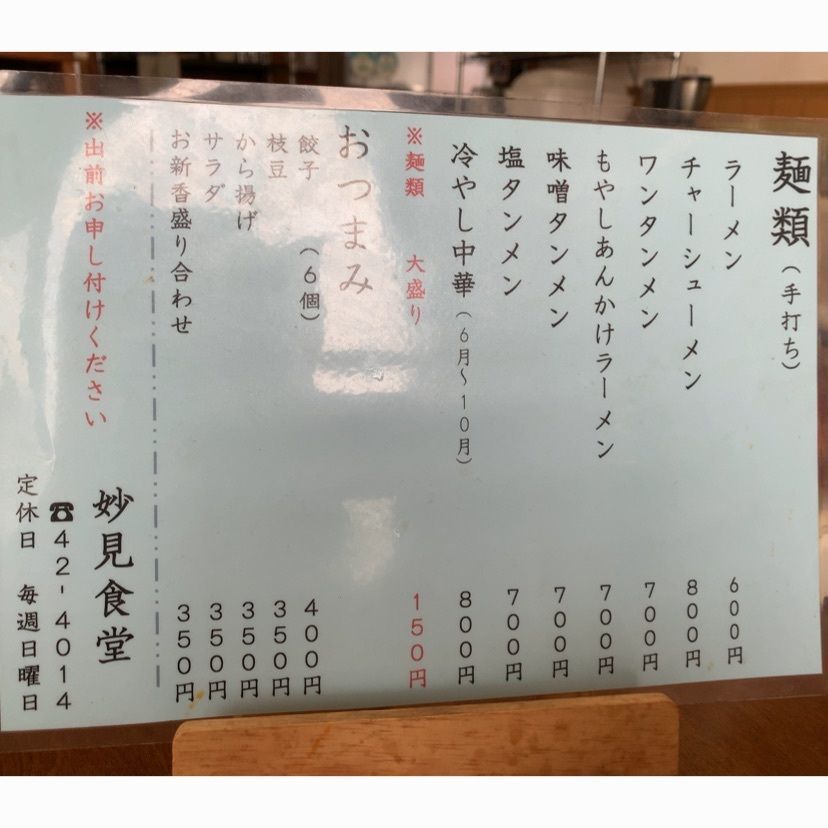 麺類（手打ち）
ラーメン 600円
チャーシューメン 800円
ワンタンメン 700円
もやしあんかけラーメン 700円
味噌タンメン 700円
塩タンメン 700円
冷やし中華（6月～10月） 800円
※麺類 大盛り 150円
おつまみ
餃子（6個） 400円
枝豆 350円
から揚げ 350円
サラダ 350円
お新香盛り合わせ 350円
※出前お申し付けください
妙見食堂
☎42-4014
定休日 毎週日曜日